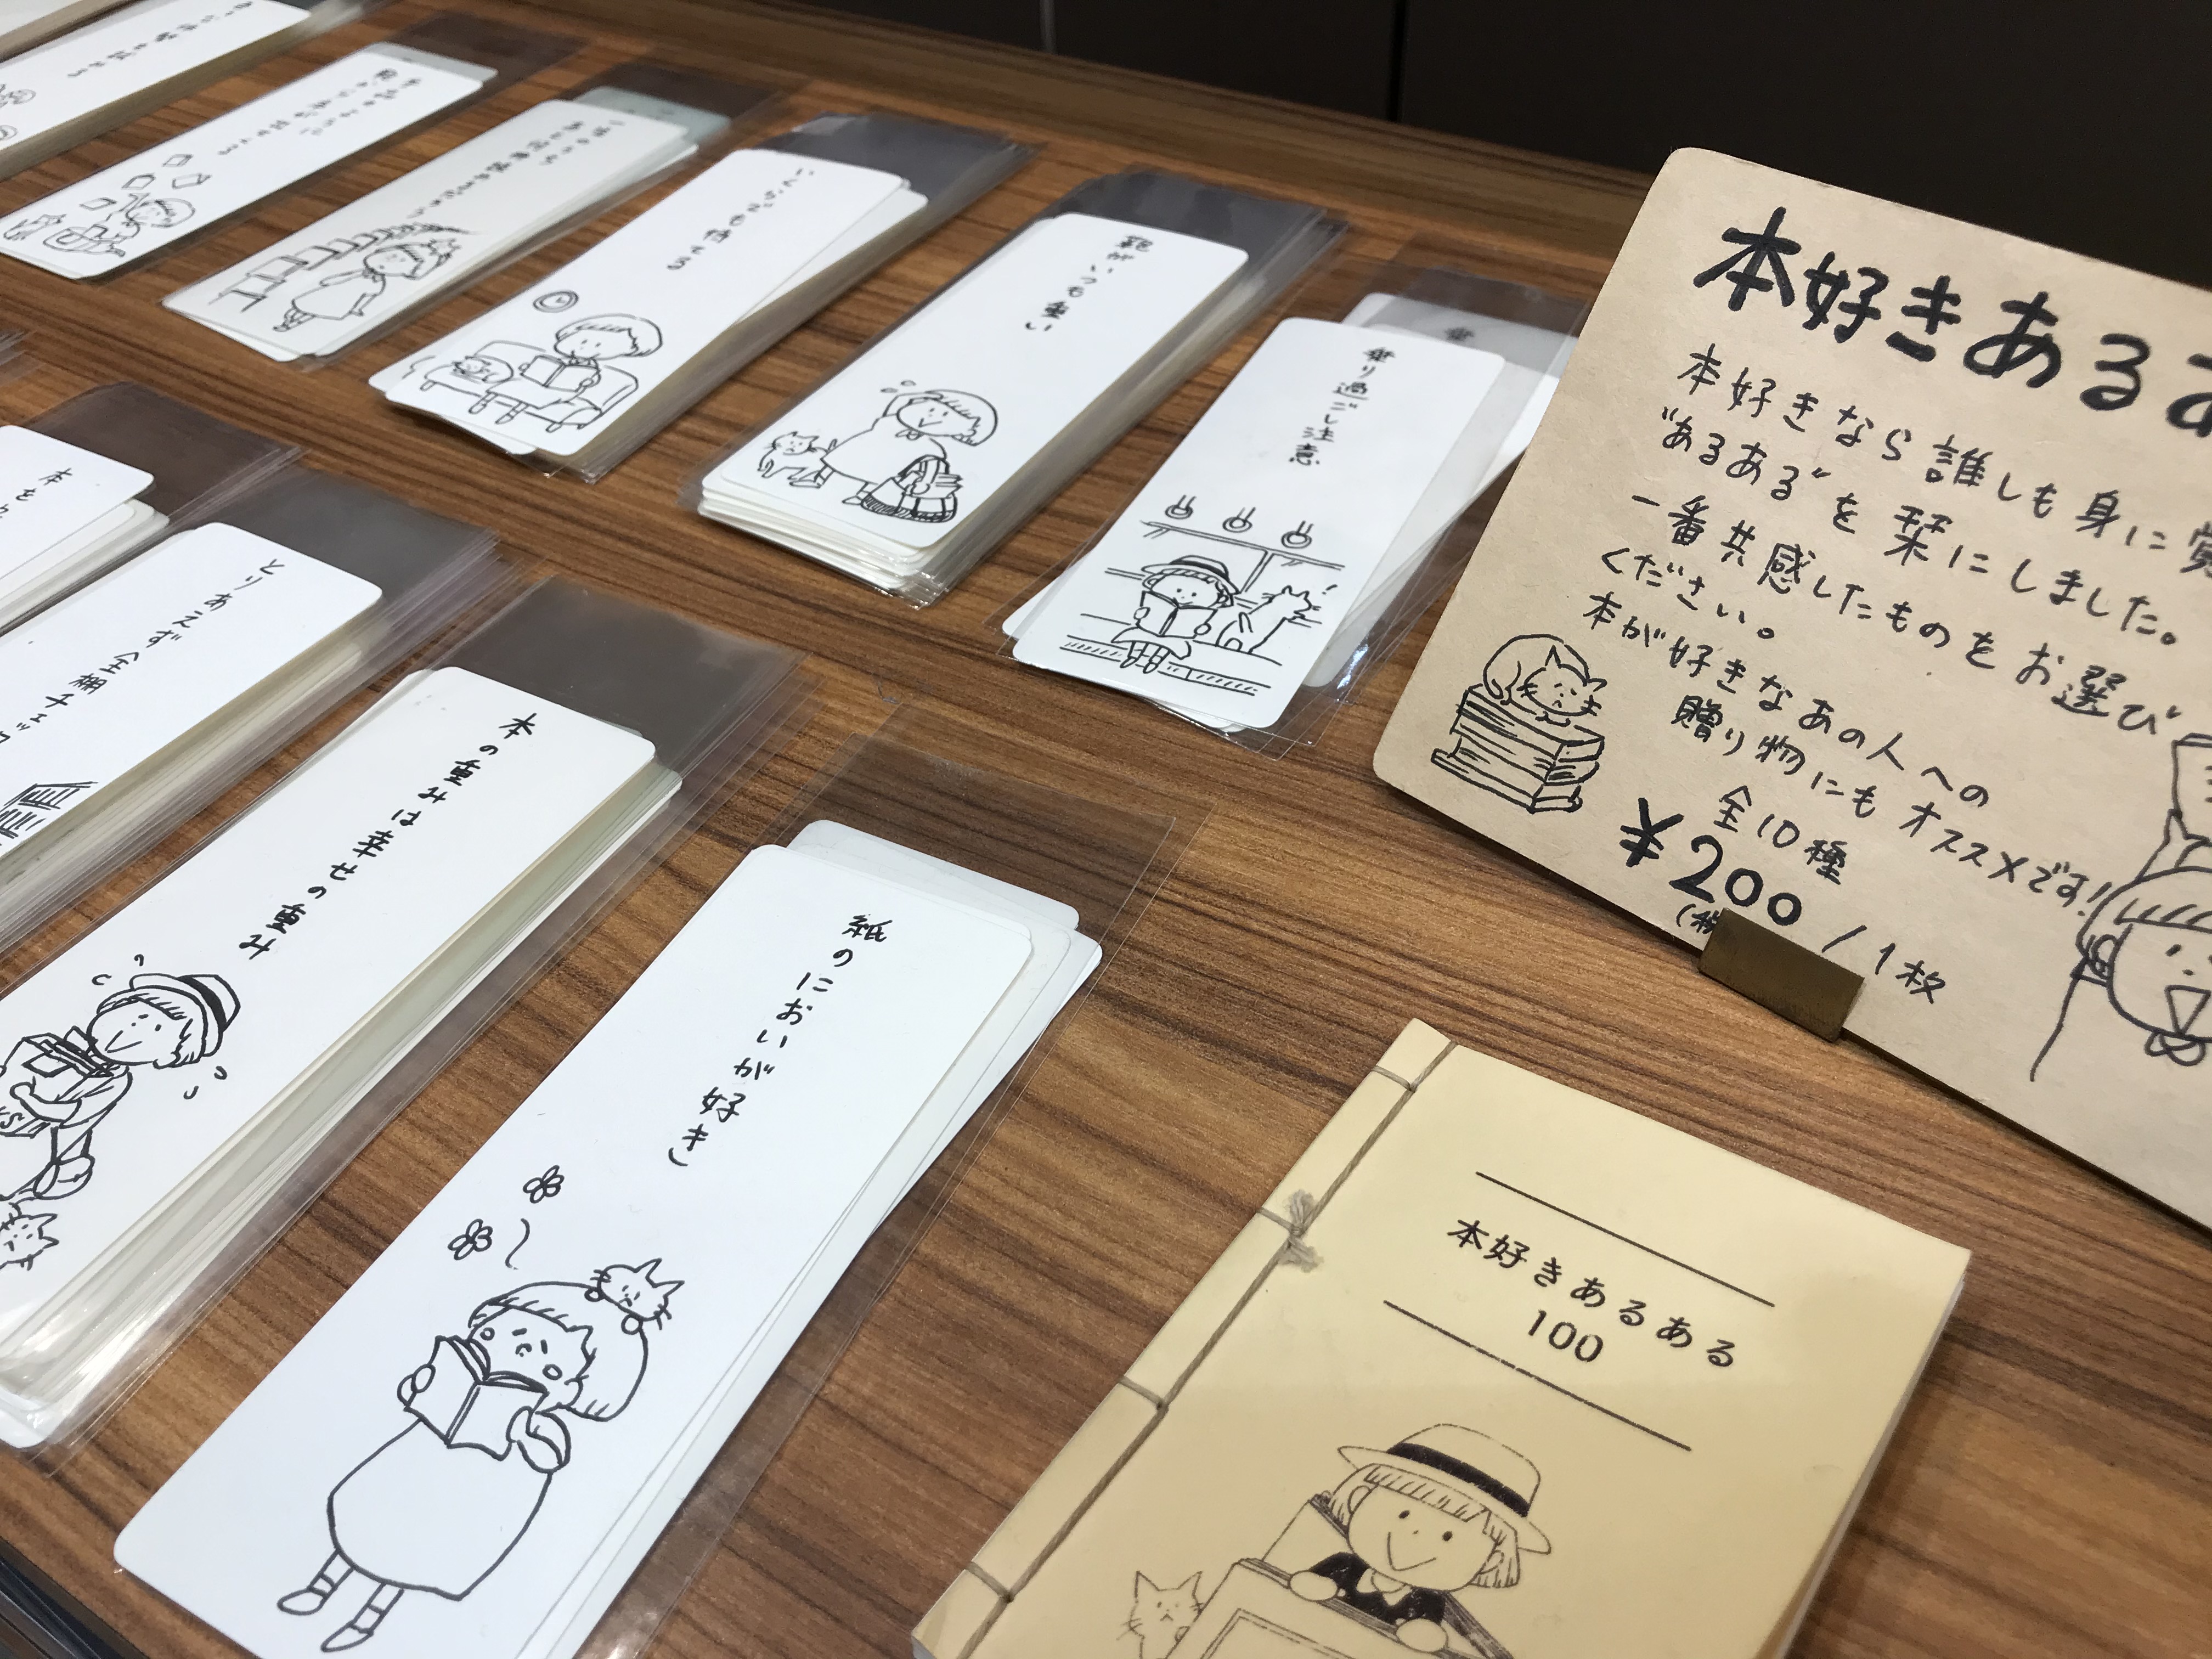 本好きあるあ
本好きなら誰しも身に覚
"あるある"を栞にしました。
一番共感したものをお選び
ください。
本が好きなあの人への
贈り物にもオススメです!
全10種
¥200/1枚
(税
乗り過ごし注意
鞄がいつも重い
いくらでも待てる
とりあえず全棚チェッ
本の重みは幸せの重み
紙のにおいが好き
本好きあるある
100